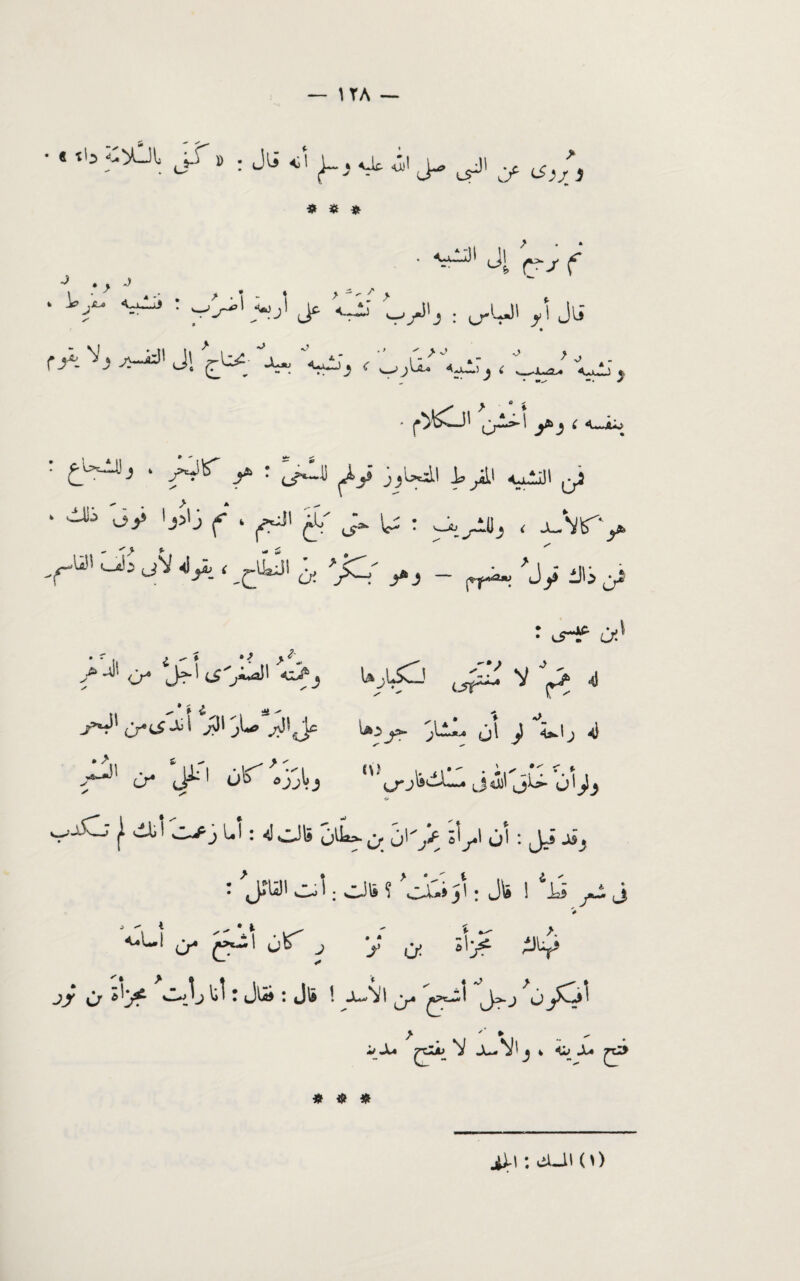 — ١٢٨ —
ويُروى عن النبي صلى الله عليه وسلم أنه قال : « كَفَى بالسَّلامَةِ داءً » .
* * *
ثم نرجعُ إلى التشبيه .
قال أبو العباس : والعربُ تُشَبِّهُ على أربعة أضرُبٍ : فتشبيهٌ مُفرِطٌ ،
وتشبيهٌ مُصيبٌ ، وتشبيهٌ مُقارِبٌ ، وتشبيهٌ بعيدٌ يحتاجُ إلى التفسير ولا يقوم
بنفسه ، وهو أخشَنُ الكلامِ .
فمن التشبيه المفرط المتجاوز قولُهم للسَّخِيِّ : هو كالبحرِ ، وللشجاع :
هو كالأسدِ ، وللشريف : سما حتى بَلَغَ النجم ، ثم زادُوا فوقَ ذلك ،
فمن ذلك قولُ بعضهم — وهو بَكْرُ بن النَّطَّاحِ ، يقوله لأبي دُلَفَ القاسمِ
ابن عيسى :
له هِمَمٌ لا مُنْتَهَى لكبارِها وهِمَّتُه الصُّغْرَى أجَلُّ من الدَّهْرِ
له راحَةٌ لو أن مِعْشارَ جُودِها على البَرِّ صارَ البَرُّ أنْدَى من البحرِ
ولو أن خَلْقَ اللهِ في مَسْكِ فارسٍ (١) وبارَزَهُ كان الخَلِيَّ من العُمْرِ
وقد قيل : إن امرأة عِمْرانَ بن حِطَّانَ قالت له : أما زعَمْتَ أنك لم تكذب
في شعرٍ قطُّ ! قال : أوَفَعَلْتُ ؟ قالت : أنت القائلُ :
فهناك مَجْزَأةُ بن ثَوْ رٍ كان أشجعَ من أُسامَه
أفيكونُ رجلٌ أشجعَ من الأسد ! قال : فقال : أنا رأيتُ مَجْزَأةَ بن ثور
فتح مدينة ، والأسد لا يفتحُ مدينة
* * *
(١) المسك : الجلد